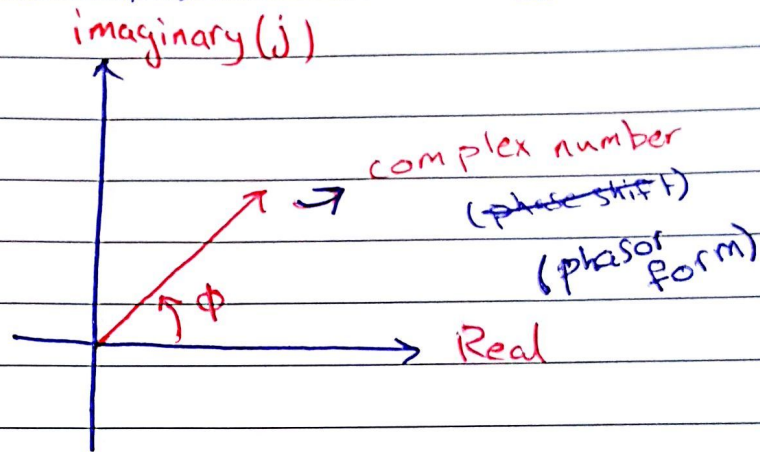 imaginary(j)
complex number
(phase shift)
(phasor
form)
Φ
Real